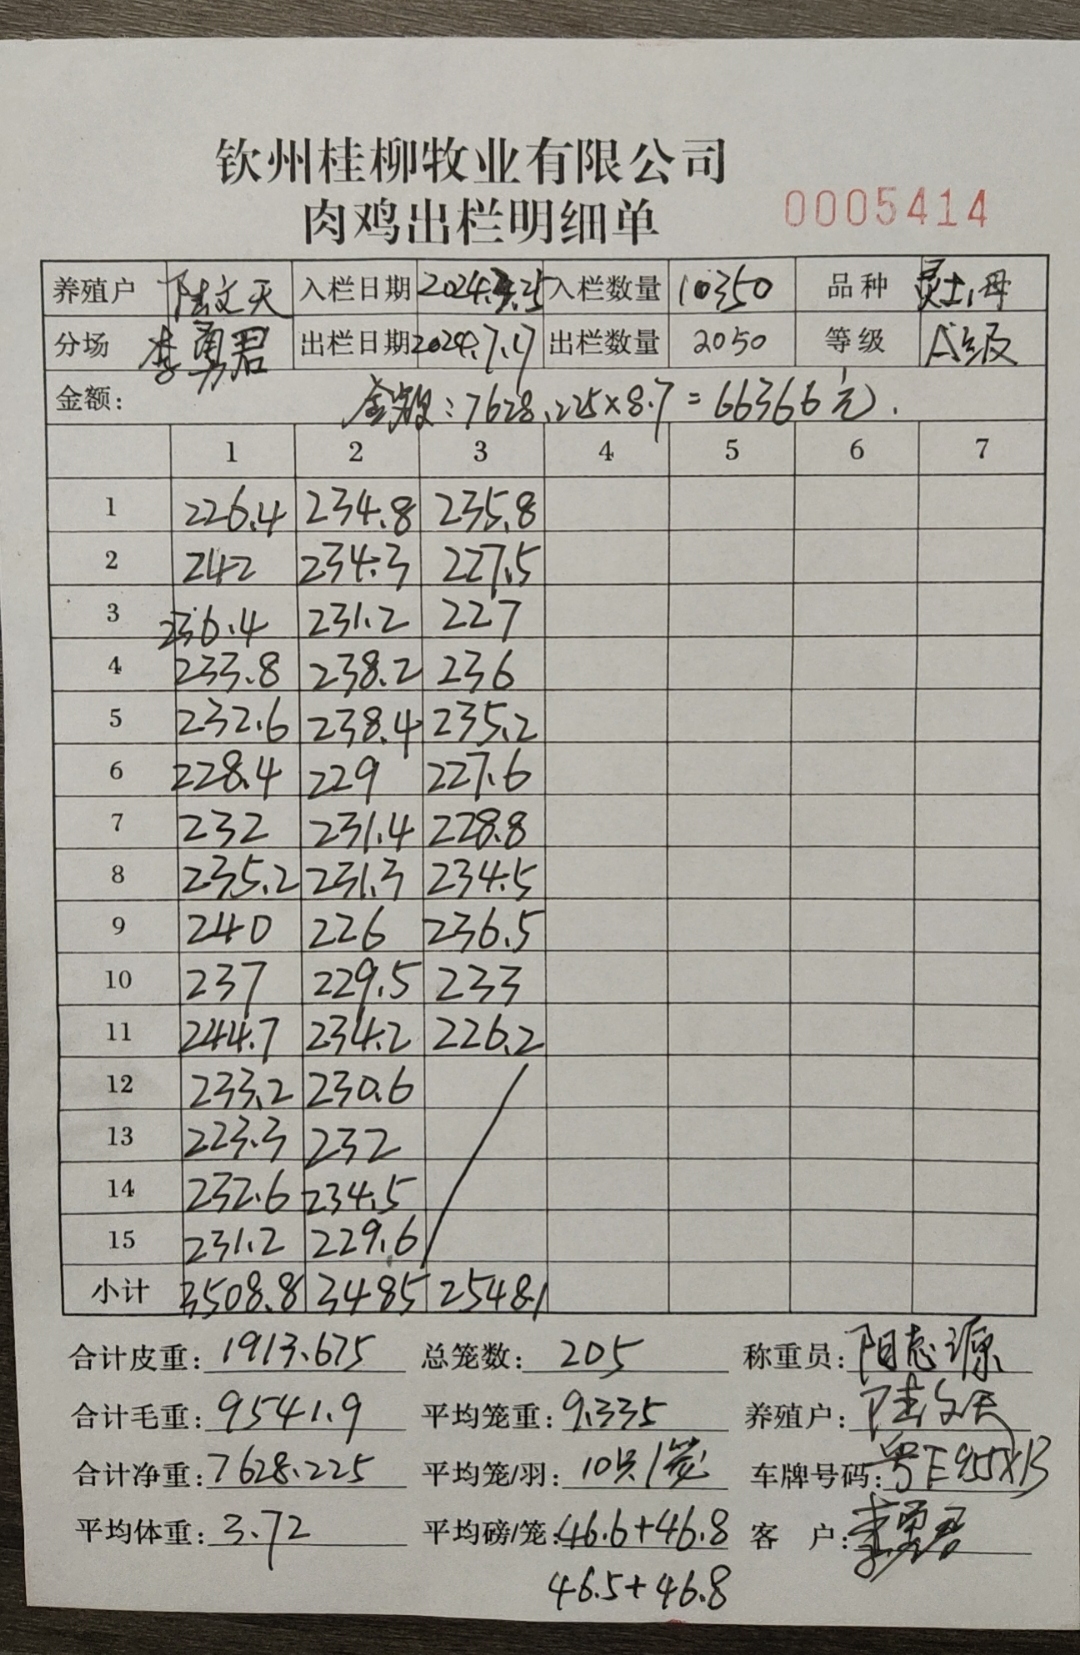 钦州桂柳牧业有限公司
肉鸡出栏明细单 0005414
养殖户 陆文天 入栏日期 2024.3.25 入栏数量 10350 品种 灵土1母
分场 李勇君 出栏日期 2024.7.17 出栏数量 2050 等级 A级
金额: 金额:7628.225×8.7=66366元.
1 2 3 4 5 6 7
1 226.4 234.8 235.8
2 242 234.3 227.5
3 236.4 231.2 227
4 233.8 238.2 236
5 232.6 238.4 235.2
6 228.4 229 227.6
7 232 231.4 228.8
8 235.2 231.3 234.5
9 240 226 236.5
10 237 229.5 233
11 244.7 234.2 226.2
12 233.2 230.6
13 223.3 232
14 232.6 234.5
15 231.2 229.6
小计 3508.8 3485 2548.1
合计皮重: 1913.675 总笼数: 205 称重员: 阳志源
合计毛重: 9541.9 平均笼重: 9.335 养殖户: 陆文天
合计净重: 7628.225 平均笼/羽: 10只/笼 车牌号码:
平均体重: 3.72 平均磅/笼: 46.6+46.8 客 户: 李勇君
46.5+46.8